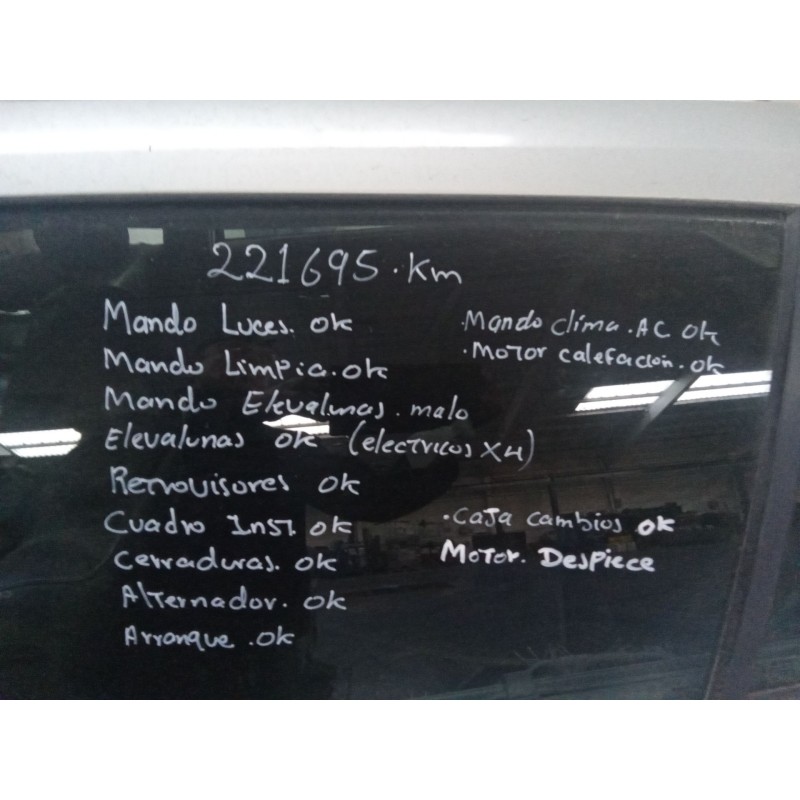 221695.Km
Mando Luces. ok
Mando Limpia. ok
Mando Elevalunas. malo
Elevalunas ok (electricos x4)
Retrovisores ok
Cuadro Inst. ok
Cerraduras. ok
Alternador. ok
Arranque. ok
.Mando clima. AC ok
.Motor calefacion. ok
.Caja cambios ok
Motor. Despiece